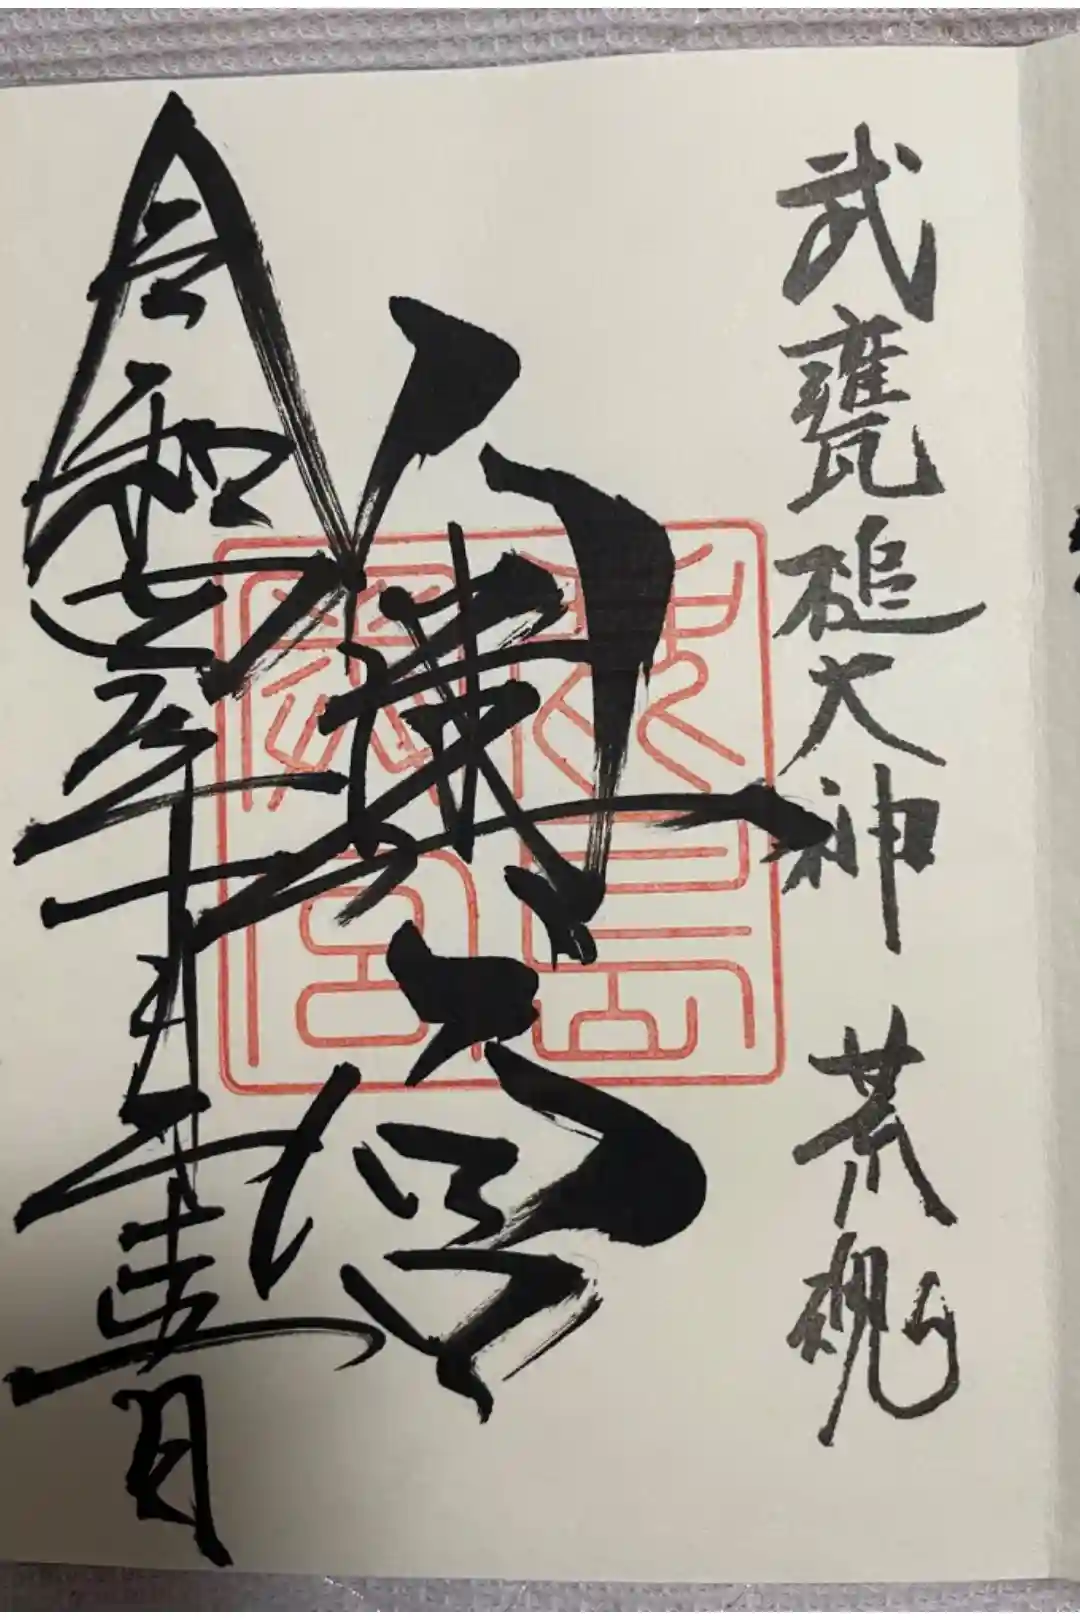 武甕槌大神 荒魂
奥宮
鹿島
奥宮
令和七年十月 日